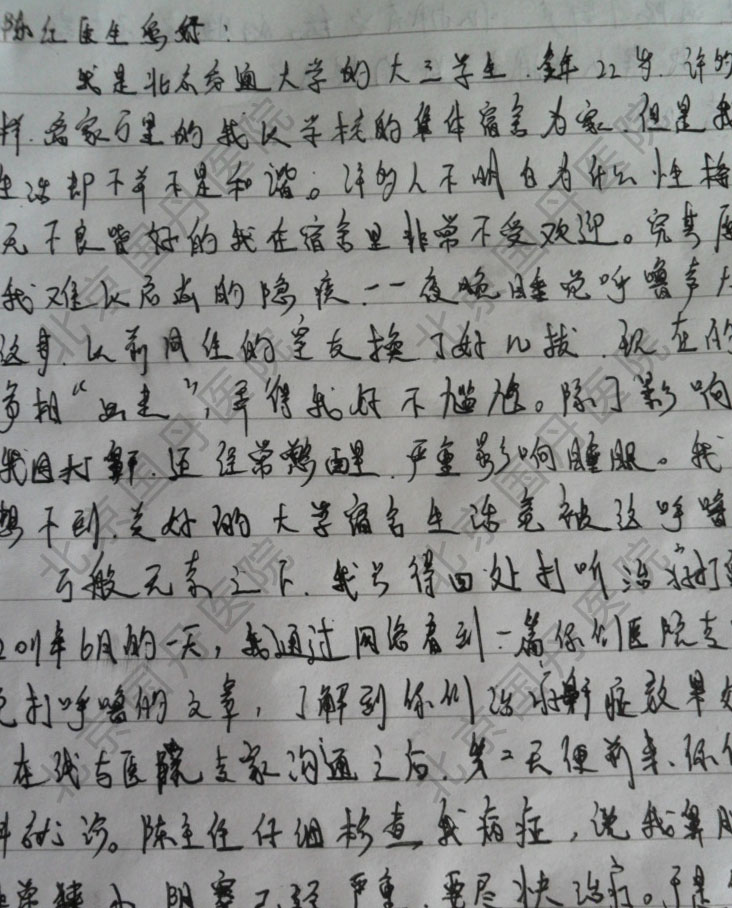 陈红医生您好：
我是北京交通大学的大三学生.今年22岁.许多
样.离家万里的我以学校的集体宿舍为家.但是我
生活却不并不是和谐。许多人不明白为什么性格
无不良嗜好的我在宿舍里非常不受欢迎。究其原
我难以启齿的隐疾——夜晚睡觉呼噜声大
这事.以前同住的室友换了好几拨.现在的
多相“出走”,弄得我好不尴尬。除了影响
我因打鼾.还经常憋醒.严重影响睡眠。我
想不到.美好的大学宿舍生活竟被这呼噜
万般无奈之下.我只得四处打听治疗打
2011年6月的一天，我通过网络看到一篇你们医院专
打呼噜的文章，了解到你们治疗鼾症效果好
在线与医院专家沟通之后.第二天便前来你们
就诊。陈主任仔细检查我病症，说我鼻
阻塞已经严重.要尽快治疗。于是
北京国丹医院
北京国丹医院
北京国丹医院
北京国丹医院
北京国丹医院
北京国丹医院